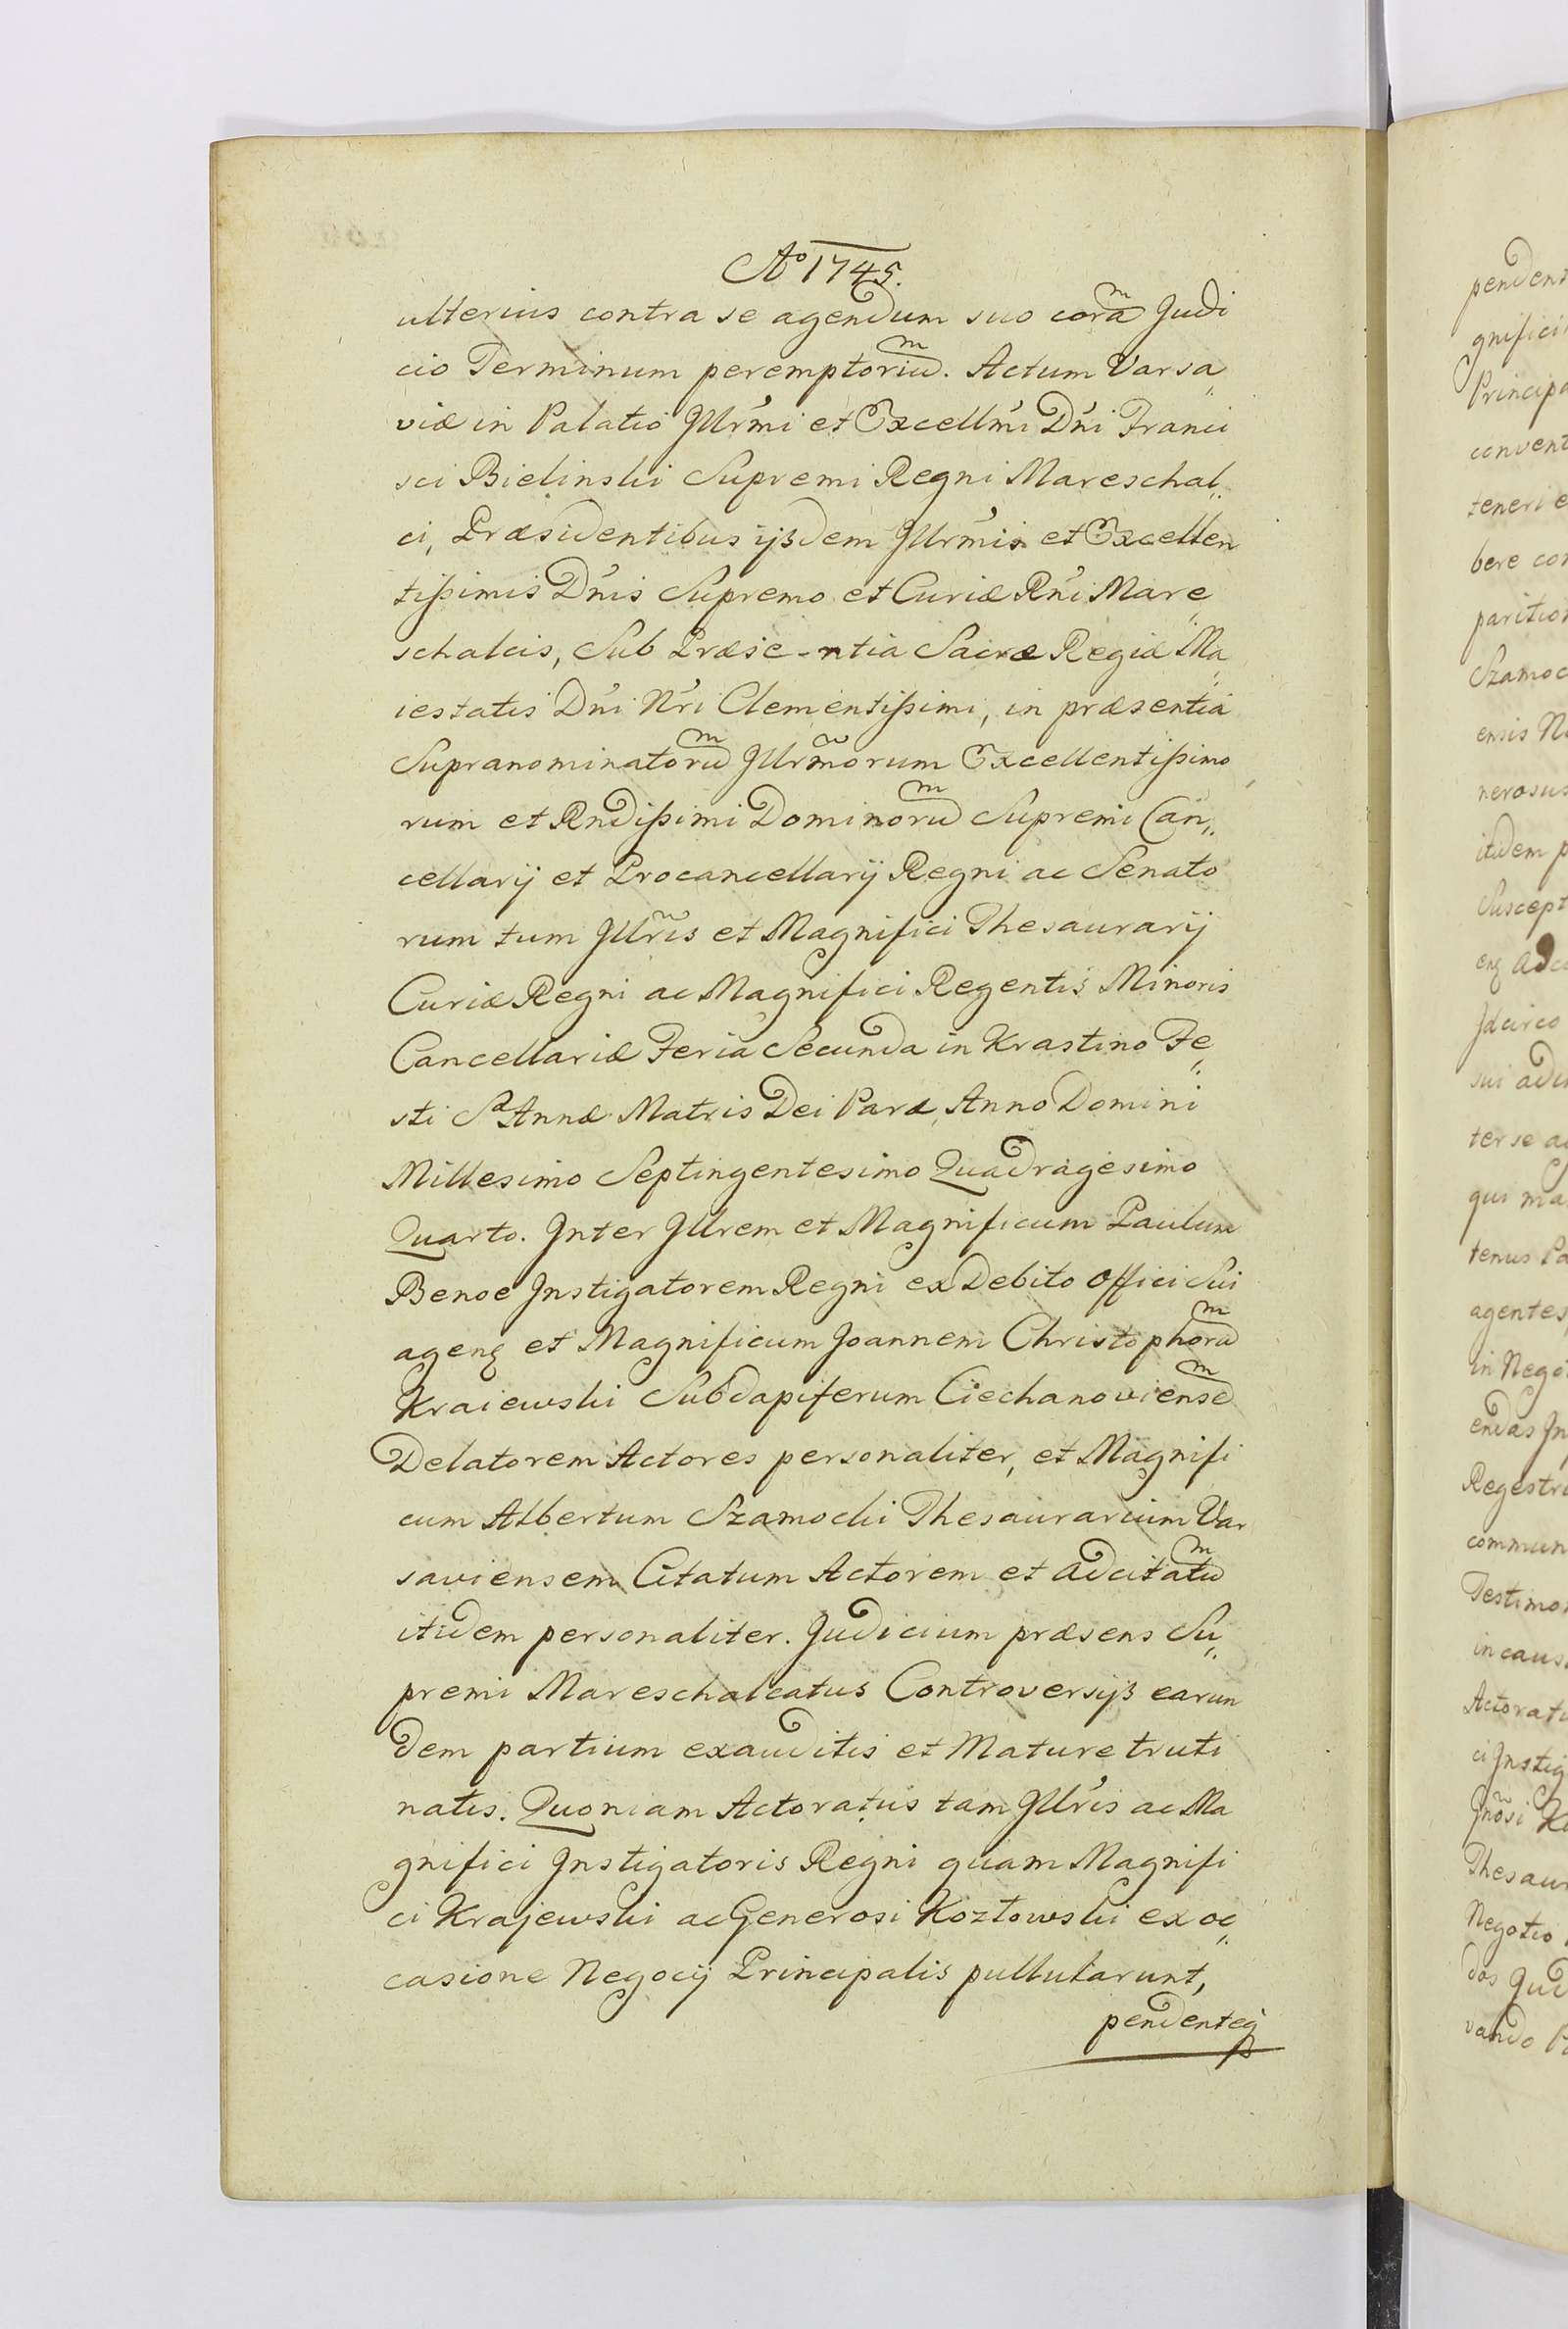 Aº 1745.
ulterius contra se agendum suo coram Judi
cio Terminum peremptorium. Actum Varsa„
viæ in Palatio Jllr̃mi et Excellm̃i Dn̄i Franci
sci Bielinski Supremi Regni Mareschal„
ci, Præsidentibus ijsdem Jllrm̃is et Excellen
tißimis Dn̄is Supremo et Curiæ Rn̄i Mare„
schalcis, Sub Præse-ntia Sacræ Regiæ Ma„
iestatis Dn̄i Nr̄i Clementißimi, in præsentia
Supranominatorum Jllrm̃orum Excellentißimo„
rum et Rndißimi Dominorum Supremi Can„
cellarij et Procancellarij Regni ac Senato
rum tum Jllr̃is et Magnifici Thesaurarij
Curiæ Regni ac Magnifici Regentis Minoris
Cancellariæ Feria Secunda in Krastino Fe„
sti Sᵃ Annæ Matris Dei Paræ, Anno Domini
Millesimo Septingentesimo Quadragesimo
Quarto. Jnter Jllrem et Magnificum Paulum
Benoe Jnstigatorem Regni ex Debito Offici Sui
agenȩ et Magnificum Joannem Christophorum
Kraiewski Subdapiferum Ciechanoviensem
Delatorem Actores personaliter, et Magnifi
cum Albertum Szamocki Thesaurarium Var
saviensem Citatum Actorem et adcitatum
itidem personaliter. Judicium præsens Su„
premi Mareschalcatus Controversijs earun
dem partium exauditis et Mature truti
natis. Quoniam Actoratus tam Jllr̃is ac Ma
gnifici Jnstigatoris Regni quam Magnifi
ci Krajewski ac Generosi Kozłowski ex oc„
casione Negocij Principalis pullularunt,
pendenteq

pendent
gnifici
Principa
convent
teneri e
bere con
parition
Szamoc
ensis N
nerosus
itidem p
Suscept
enȩ adc
Jdcirco
sui adci
ter se a
qui ma
tenus Pa
agentes
in Nego
endas Jn
Regestr
commun
Testimon
in caus
Actorat
ci Jnstig
Gnõsi K
Thesaur
Negotio
dos Jud
vando P